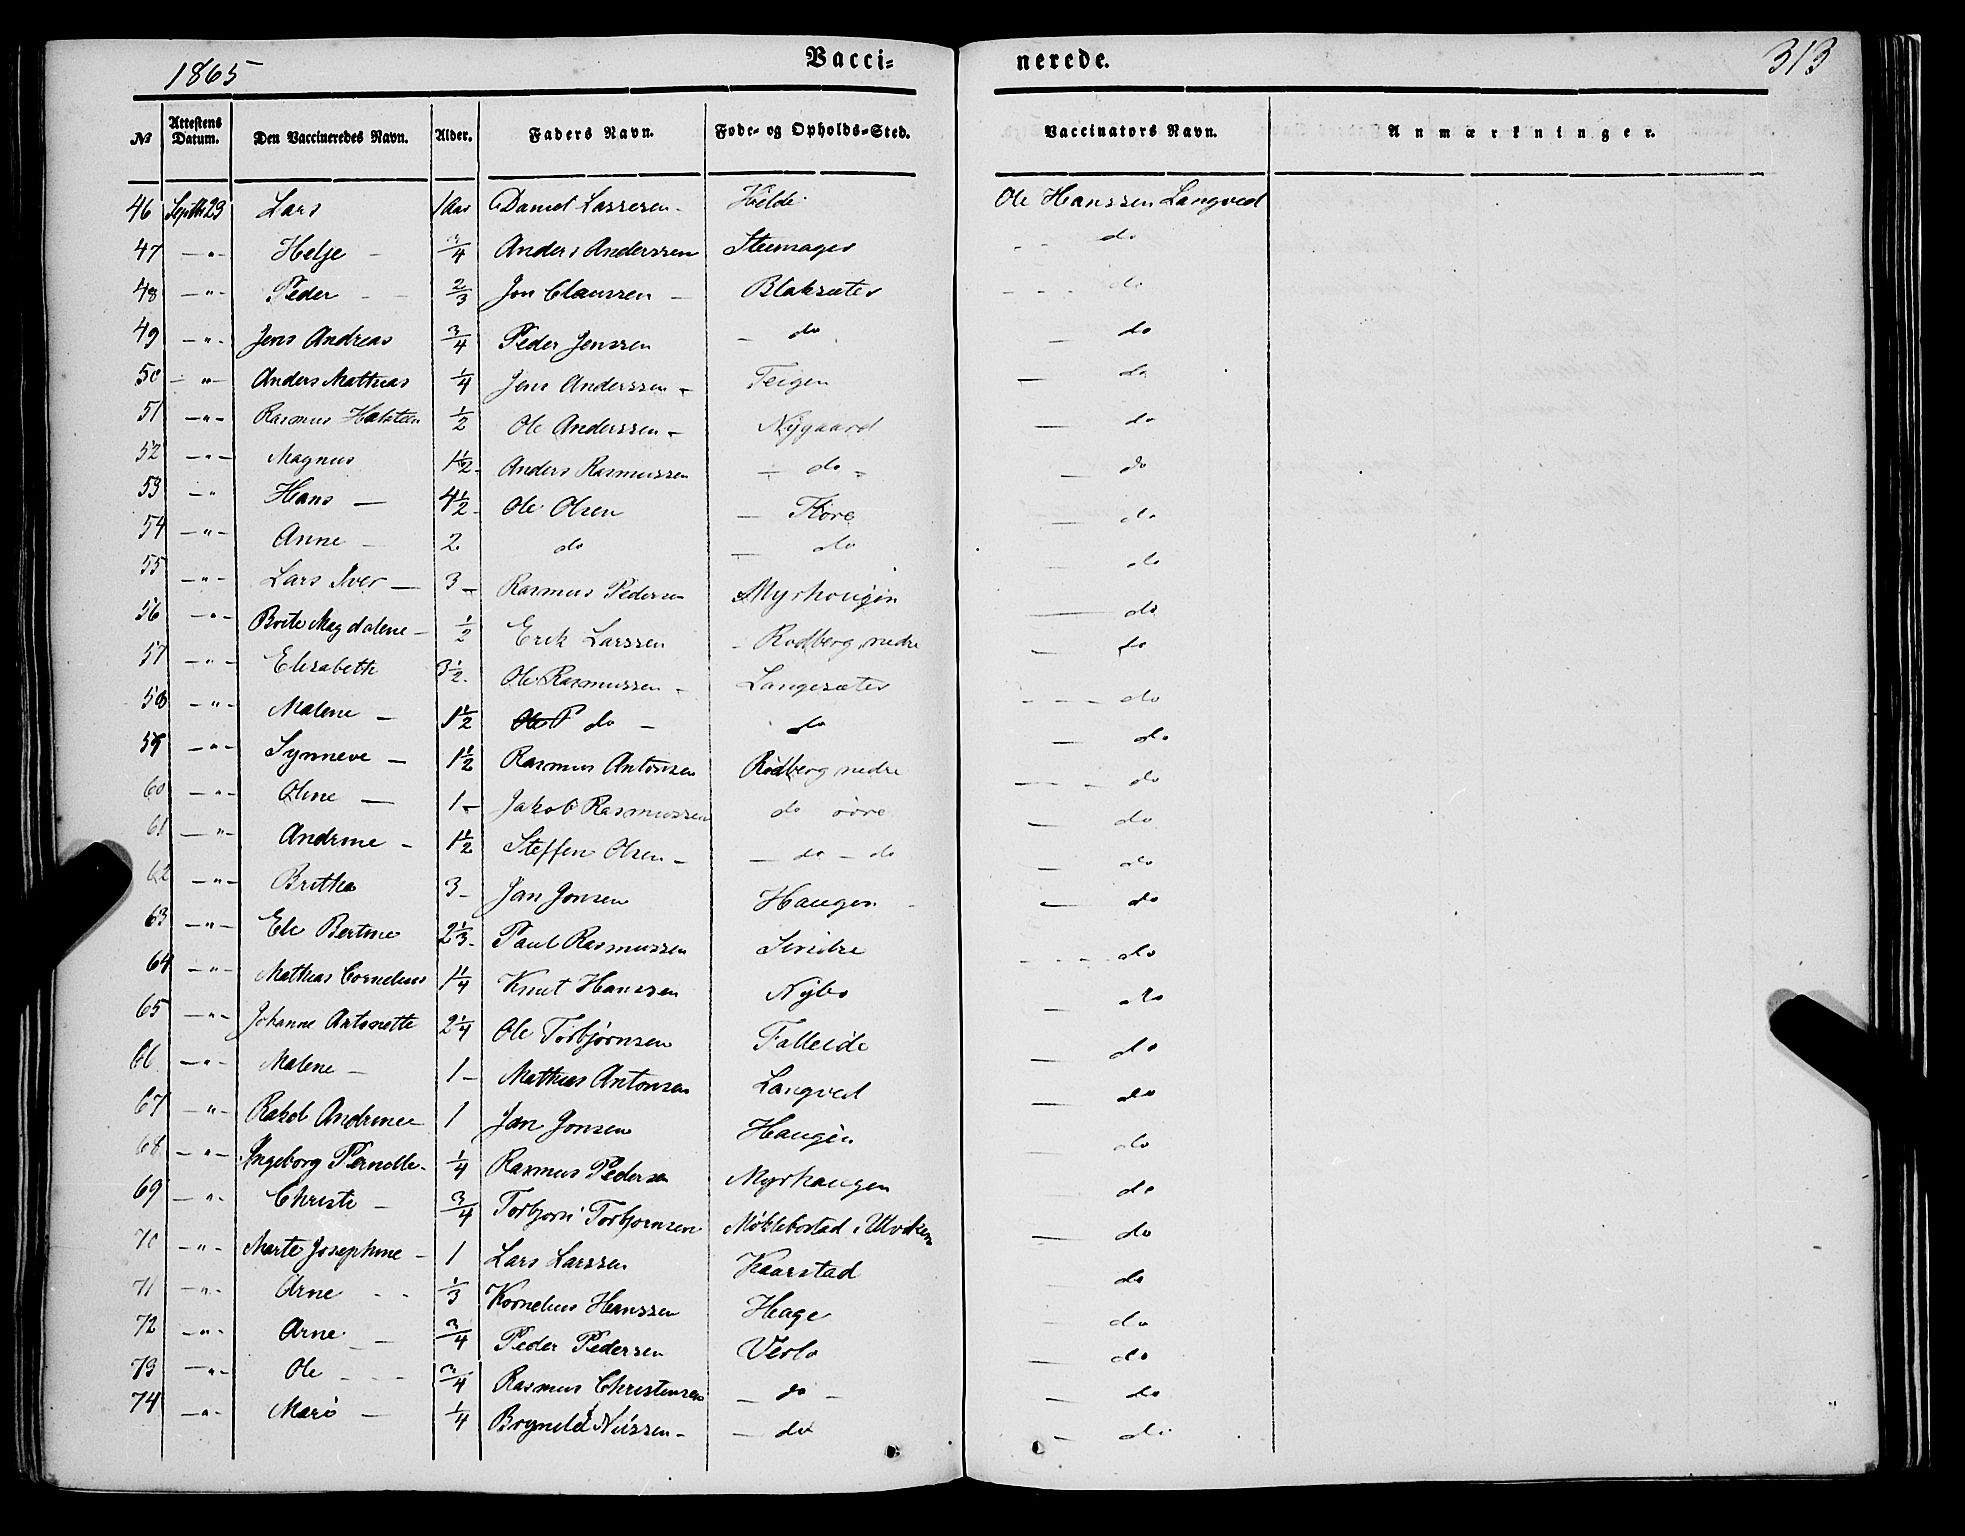 1865 Vacci- nerede. 313
No Attestens Datum. Den Vaccineredes Navn. Alder. Faders Navn. Føde- og Opholds-Sted. Vaccinators Navn. Anmærkninger.
46 Septbr 29 Lars 1 Aar Daniel Lassesen - Helde Ole Hanssen Langved
47 —"— Helje - 3/4 Anders Anderssen Steensager - - do
48 —"— Peder - - 2/3 Jon Claussen - Blaksæter - - - do
49 —"— Jens Andreas 3/4 Peder Jenssen — do — do
50 —"— Anders Mathias 1/4 Jens Anderssen - Teigen — do
51 —"— Rasmus 1/2 Ole Anderssen - Nÿgaard — do
52 —"— Magnus 1 1/2 - Anders Rasmussen — do - — do
53 —" Hans — 4 1/2 - Ole Olsen — Flore — do
54 —"— Anne - 2 do — do — do
55 —"— Lars Iver — 3 - Rasmus Pedersen Myrhougen — do
56 —"— Brite Magdalene - 1/2 Erik Larssen - Rodberg nedre — do
57 —"— Elisabeth 3 1/2 - Ole Rasmussen - Langesæter — do
58 —"— Malene — 1 1/2 P do — do - - - do
59 —"— Synneve — 1 1/2 Rasmus Antonsen Rødberg nedre — do
60 —"— Oline — 1 - Jakob Rasmussen do øvre — - do
61 —"— Andrine - 1 1/2 Steffen Olsen - — do — do — do
62 —"— Britha 3 - Jan Jonsen Haugen - — do
63 —"— Ele Bertine 2 1/3 - Paul Rasmussen Sindre — do
64 —"— Mathias Cornelius 1 1/4 Knut Hanssen Nÿbø - - - do
65 —"— Johanne Antonette 2 1/4 Ole Torbjørnsen Falleide — do
66 —"— Malene — 1 — Mathias Antonsen Langved — do
67 —"— Rakel Andrine 1 Jan Jonsen Haugen — do
68 —"— Ingeborg Pernelle - 1/4 Rasmus Pedersen Myrhaugen — do
69 —"— Christi - 3/4 Torbjørn Torbjørnsen Møklebostad i Utviken — do
70 —"— Marte Josephine - 1 Lars Larssen Kaarstad — do
71 —"— Arne - - 1/3 Kornelius Hanssen Hage — do
72 —"— Arne — 3/4 Peder Pedersen Verlo — do
73 —"— Ole - - - 3/4 Rasmus Christensen — do — — do
74 —"— Mari — 1/4 Brynild Nilssen - — do — do